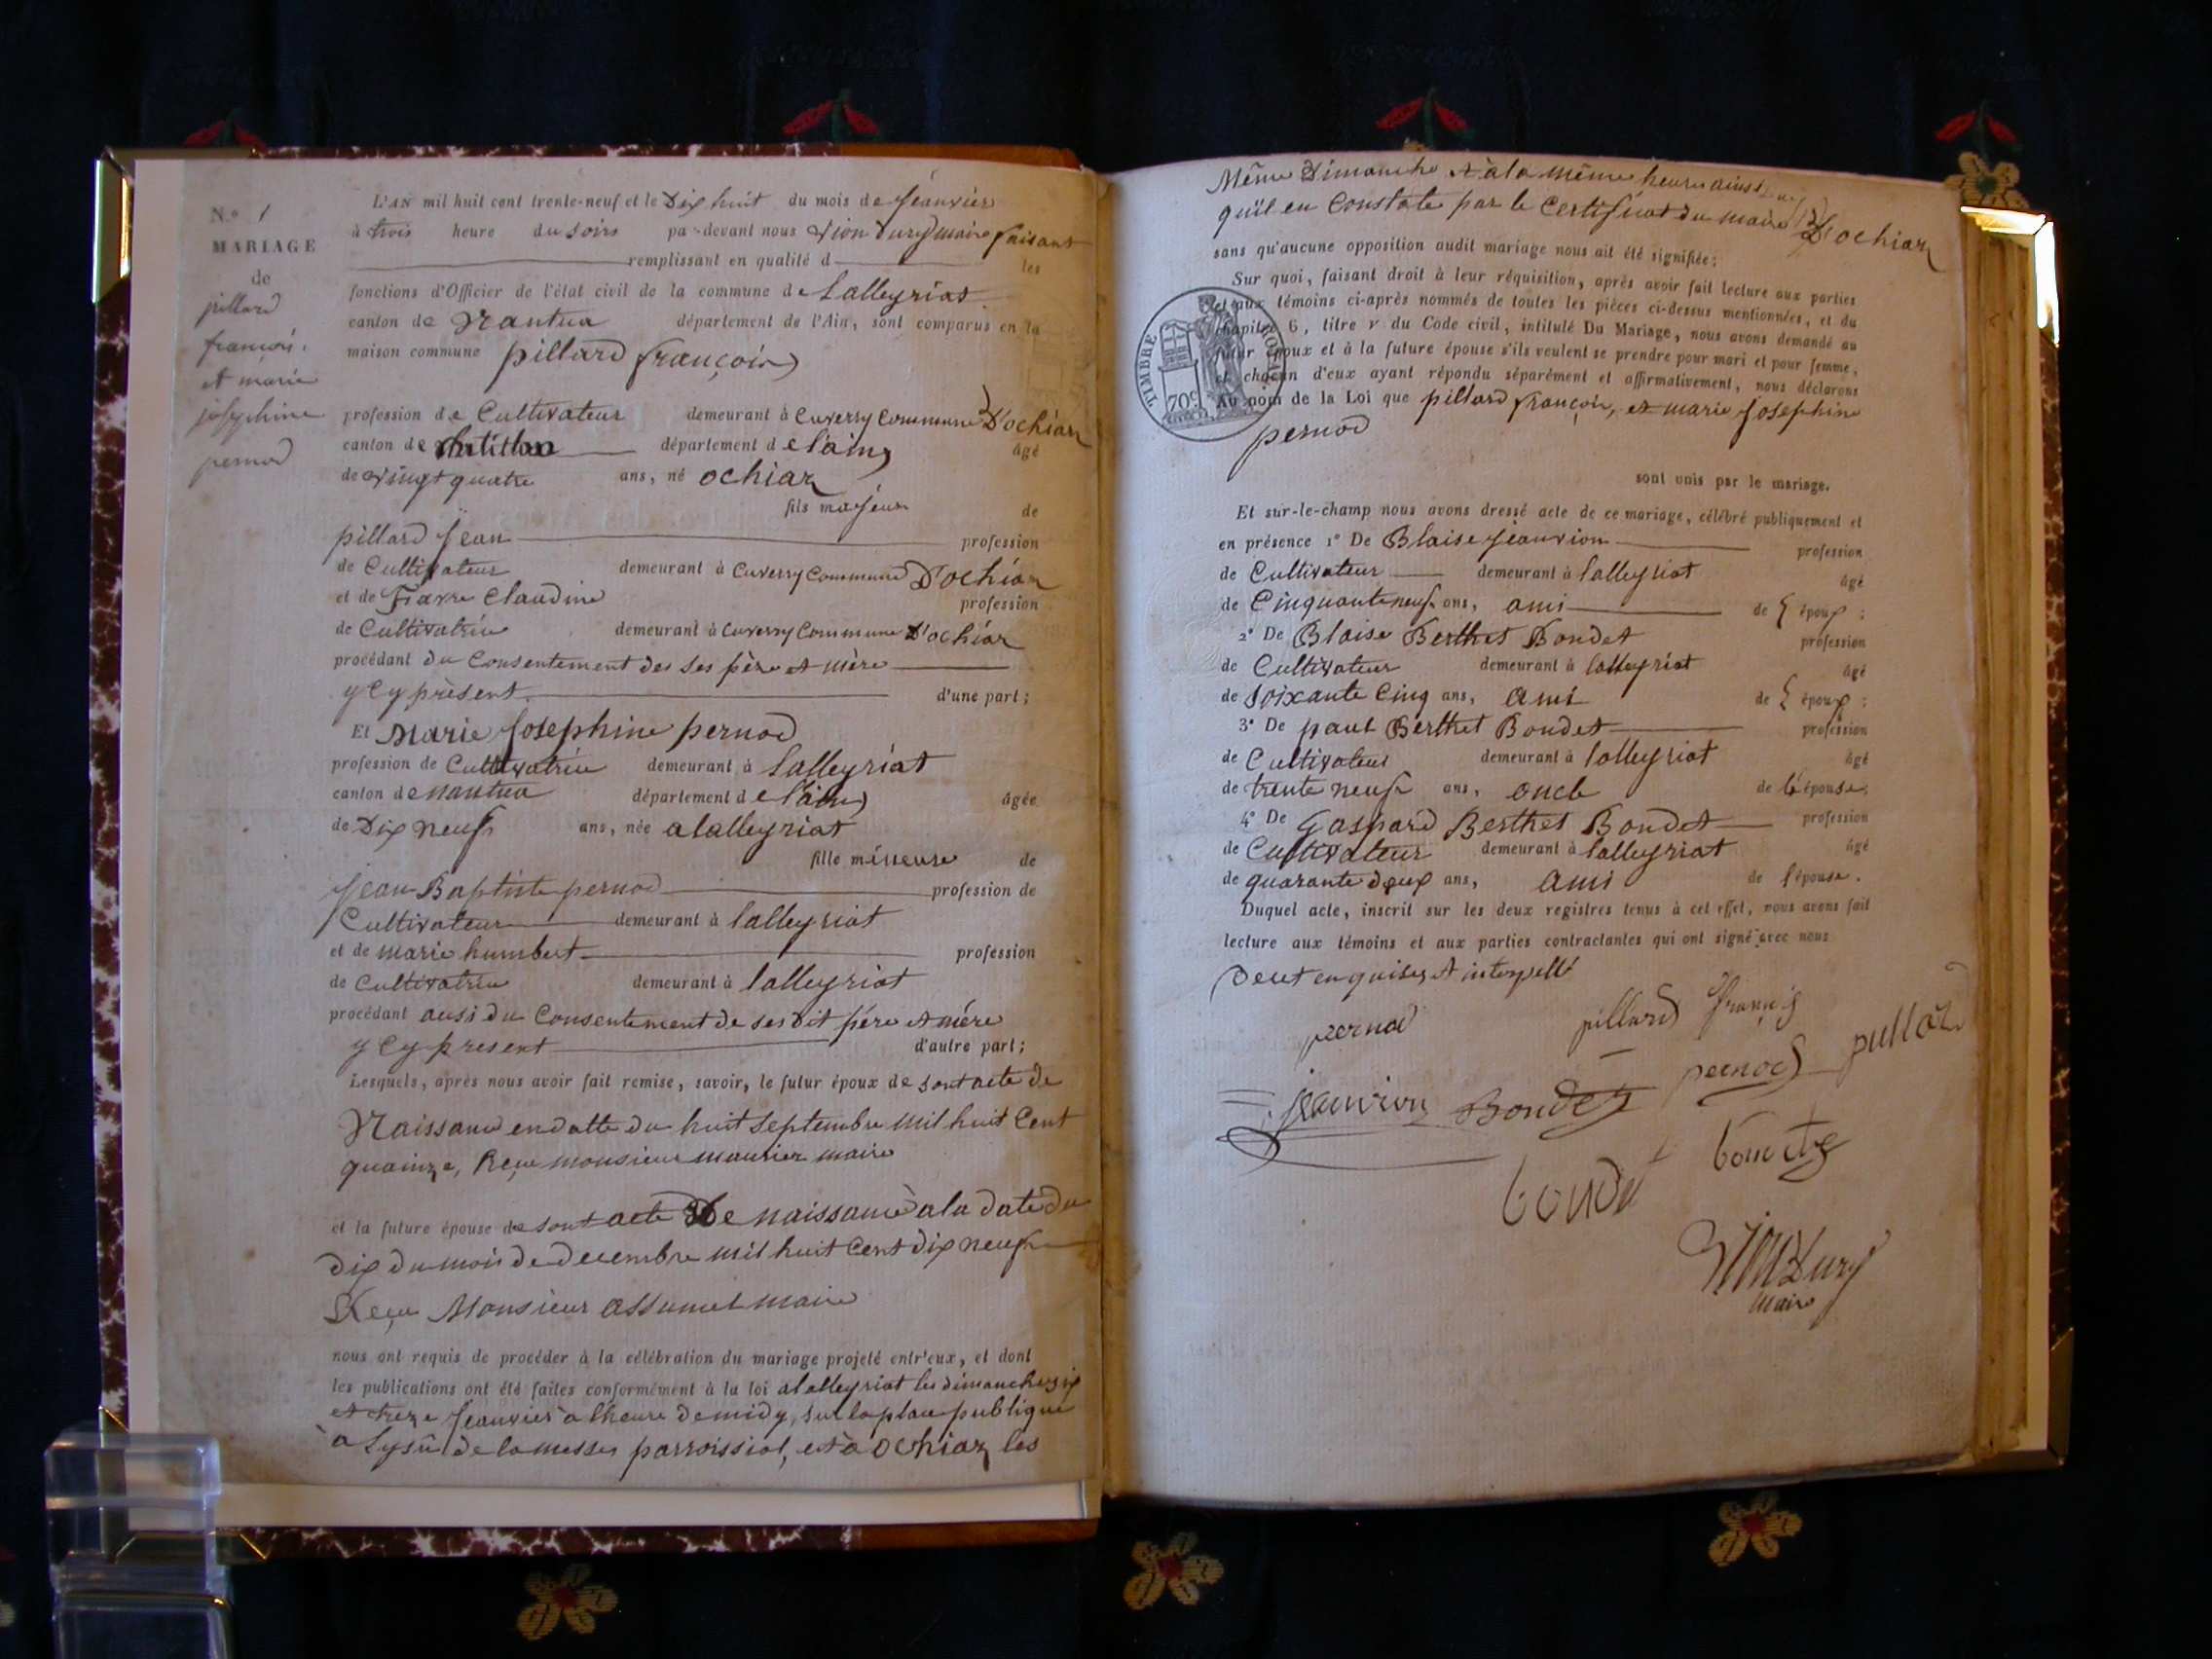 N.º 1
MARIAGE
de
pillard
françois.
et marie
joséphine
pernod
L'AN mil huit cent trente-neuf et le Dix huit du mois de Jeanvier
à trois heure du soirs par-devant nous Vion Dury maire faisant
remplissant en qualité d les
fonctions d'Officier de l'état civil de la commune de Lalleyriat
canton de Nantua département de l'Ain, sont comparus en la
maison commune pillard françois
profession de Cultivateur demeurant à Cuverry Commune D'ochiaz
canton de Chatillon département de l'ain âgé
de vingt quatre ans, né ochiaz
fils majeur de
pillard Jean profession
de Cultivateur demeurant à Cuverry Commune D'ochiaz
et de Favre Claudine profession
de Cultivatrice demeurant à Cuverry Commune D'ochiaz
procédant du Consentement des ses père et mère
ycy présent d'une part;
Et Marie Josephine pernod
profession de Cultivatrice demeurant à lalleyriat
canton de nantua département de l'ain âgée
de Dix neuf ans, née a lalleyriat
fille mineure de
Jean Baptiste pernod profession de
Cultivateur demeurant à lalleyriat
et de marie humbert profession
de Cultivatrice demeurant à lalleyriat
procédant ausi du Consentement de ses Dit père et mère
ycy present d'autre part;
Lesquels, après nous avoir fait remise, savoir, le futur époux de sont acte de
Naissance en datte du huit septembre mil huit Cent
quainze, Reçu monsieur maurier maire
et la future épouse de sont acte De naissance à la date du
dix du mois de decembre mil huit Cent dix neuf
Reçu Monsieur assumel maire
nous ont requis de procéder à la célébration du mariage projeté entr'eux, et dont
les publications ont été faites conformément à la loi a lalleyriat les dimanche six
et treze Jeanvier a lheure de midy, sur la place publique
à Lysûe de la messe parroissial, et à ochiaz les
Même Dimanche et à la même heure ainsi
qu'il en Constate par le Certificat du maire D'ochiaz
sans qu'aucune opposition audit mariage nous ait été signifiée;
Sur quoi, faisant droit à leur réquisition, après avoir fait lecture aux parties
et aux témoins ci-après nommés de toutes les pièces ci-dessus mentionnées, et du
chapitre 6, titre v du Code civil, intitulé Du Mariage, nous avons demandé au
futur époux et à la future épouse s'ils veulent se prendre pour mari et pour femme,
et chacun d'eux ayant répondu séparément et affirmativement, nous déclarons
Au nom de la Loi que pillard françois, et marie Josephine
pernod
TIMBRE ROYAL
70c
sont unis par le mariage.
Et sur-le-champ nous avons dressé acte de ce mariage, célébré publiquement et
en présence 1º De Blaise Jeanvion profession
de Cultivateur demeurant à lalleyriat âgé
de Cinquante neuf ans, ami de l époux ;
2º De Blaise Berthet Bondet profession
de Cultivateur demeurant à lalleyriat âgé
de soixante Cinq ans, ami de l époux ;
3º De paul Berthet Bondet profession
de Cultivateur demeurant à lalleyriat âgé
de trente neuf ans, oncle de l'épouse;
4º De Gaspard Berthet Bondet profession
de Cultivateur demeurant à lalleyriat âgé
de quarante deux ans, ami de l'épouse.
Duquel acte, inscrit sur les deux registres tenus à cet effet, nous avons fait
lecture aux témoins et aux parties contractantes qui ont signé avec nous
De cet enquises et interpellé
pernod pillard françois
pernod pillard
jeanvion Bondet
bondet
bondet
Vion Dury
maire